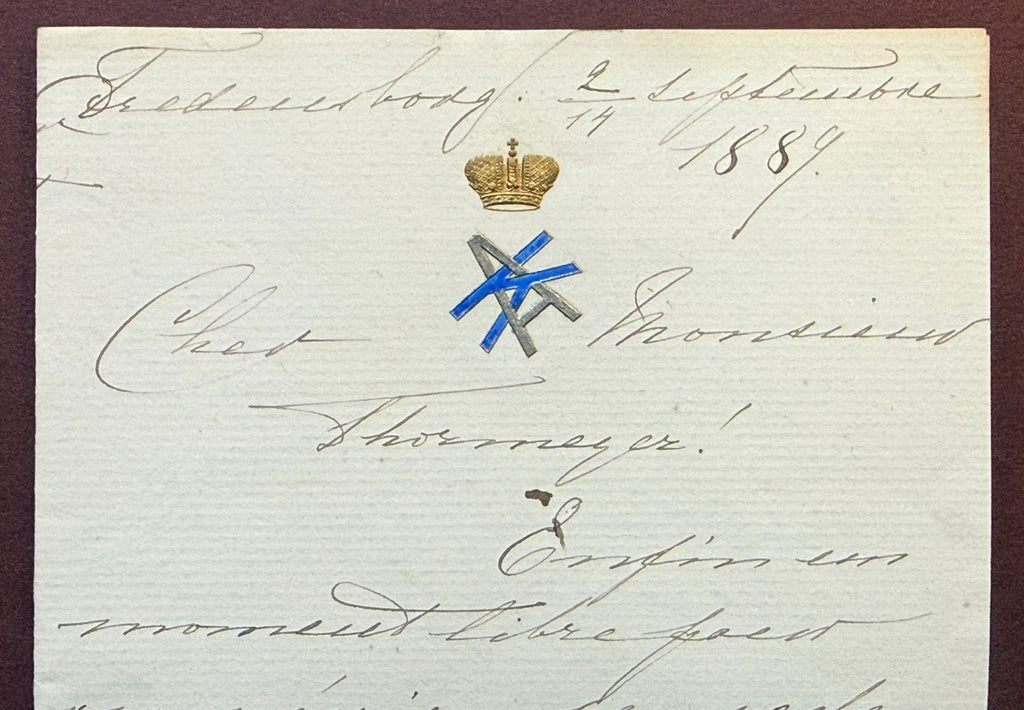 Fredensborg. 2/14 Septembre
1889.
Cher Monsieur
Thormeyer!
Enfin un
moment libre pour